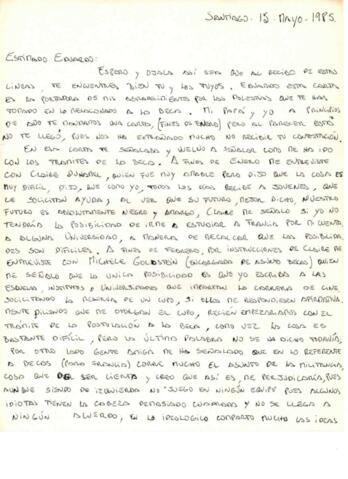 SANTIAGO - 15 - MAYO - 1985.
ESTIMADO EDUARDO:
ESPERO Y OJALA ASI SEA QUE AL RECIBO DE ESTAS
LINEAS, TE ENCUENTRES BIEN TU Y LOS TUYOS. EDUARDO ESTA CARTA
ES LA PORTADORA DE MIS AGRADECIMIENTOS POR LAS MOLESTIAS QUE TE HAS
TOMADO EN LO RELACIONADO A LA BECA. MI PAPÁ Y YO A PRINCIPIOS
DE AÑO TE MANDAMOS UNA CARTA, (FINES DE ENERO) PERO AL PARECER ESTA
NO TE LLEGÓ, PUES NOS HA EXTRAÑADO MUCHO NO RECIBIR TU CONTESTACION.
EN ESA CARTA TE SEÑALABA Y VUELVO A SEÑALAR COMO ME HA IDO
CON LOS TRAMITES DE LA BECA. A FINES DE ENERO ME ENTREVISTE
CON CLAIRE QUIEN FUE MUY AMABLE PERO DIJO QUE LA COSA ES
MUY DIFICIL, DIJO, QUE COMO YO, TODOS LOS DIAS RECIBE A JOVENES, QUE
LE SOLICITAN AYUDA; AL VER QUE SU FUTURO, MEJOR DICHO, NUESTRO
FUTURO ES ABSOLUTAMENTE NEGRO Y AMARGO, CLAIRE ME SEÑALO SI YO NO
TENDRIA LA POSIBILIDAD DE IRME A ESTUDIAR A FRANCIA POR MI CUENTA
A ALGUNA UNIVERSIDAD, A MANERA DE RECALCAR QUE LAS POSIBILIDA-
DES SON DIFICILES. A FINES DE FEBRERO, POR INSTRUCCIONES DE CLAIRE ME
ENTREVISTE CON MICHÈLE GOLDSTEIN (ENCARGADA DE ASUNTO BECAS) QUIEN
ME SEÑALO QUE LA UNICA POSIBILIDAD ES QUE YO ESCRIBA A LAS
ESCUELAS, INSTITUTOS O UNIVERSIDADES QUE IMPARTAN LA CARRERA DE CINE,
SOLICITANDO LA RESERVA DE UN CUPO, SI ELLOS ME RESPONDIESEN AFIRMATIVA-
MENTE DIGAMOS QUE ME OTORGAN EL CUPO, RECIEN EMPEZARIAMOS CON EL
TRÁMITE DE LA POSTULACIÓN A LA BECA, COMO VEZ LA COSA ES
BASTANTE DIFÍCIL, PERO LA ÚLTIMA PALABRA NO SE HA DICHO TODAVÍA,
POR OTRO LADO GENTE AMIGA ME HA SEÑALADO QUE EN LO REFERENTE
A BECAS (PARA FRANCIA) CORRE MUCHO EL ASUNTO DE LA MILITANCIA,
COSA QUE SER CIERTA Y CREO QUE ASI ES, ME PERJUDICARÍA, PUES
AUNQUE SIENDO DE IZQUIERDA NO "JUEGO EN NINGÚN EQUIPO" PUES ALGUNOS
IDIOTAS TIENEN LA CABEZA DEMASIADO CUADRADA Y NO SE LLEGA A
NINGÚN ACUERDO, EN LO IDEOLOGICO COMPARTO MUCHO LAS IDEAS